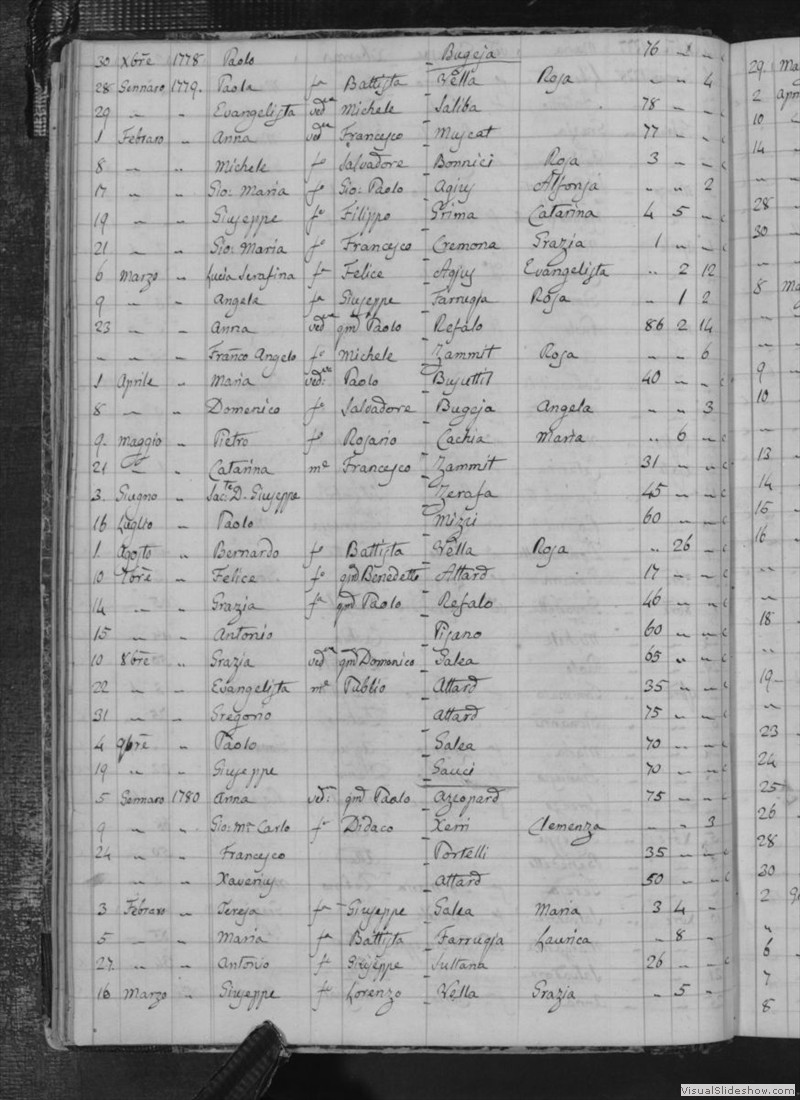 30 Xbre 1778 Paolo Bugeja 76 " "
28 Gennaro 1779. Paola fa Battista Vella Rosa " " 4
29 " " Evangelista veda Michele Saliba 78 " "
1 Febraro " Anna veda Francesco Muscat 77 " "
8 " " Michele fo Salvadore Bonnici Rosa 3 " "
17 " " Gio: Maria fo Gio: Paolo Agius Alfonsa " " 2
19 " " Giuseppe fo Filippo Grima Catarina 4 5 "
21 " " Gio: Maria fo Francesco Cremona Grazia 1 " "
6 Marzo " Lucia Serafina fa Felice Agius Evangelista " 2 12
9 " " Angela fa Giuseppe Farrugia Rosa " 1 2
23 " " Anna veda qm Paolo Refalo 86 2 14
" " " Franco Angelo fo Michele Zammit Rosa " " 6
1 Aprile " Maria veda Paolo Busuttil 40 " "
8 " " Domenico fo Salvadore Bugeja Angela " " 3
9. Maggio " Pietro fo Rosario Cachia Maria " 6 "
21 " " Catarina me Francesco Zammit 31 " "
3 Giugno " Sacte D. Giuseppe Zerafa 45 " "
16 Luglio " Paolo Mizzi 60 " "
1 Agosto " Bernardo fo Battista Vella Rosa " 26 "
10 7bre " Felice fo qm Benedetto Attard 17 " "
14 " " Grazia fa qm Paolo Refalo 46 " "
15 " " Antonio Pisano 60 " "
10 8bre " Grazia veda qm Domenico Galea 65 " "
22 " " Evangelista me Publio Attard 35 " "
31 " " Gregorio Attard 75 " "
4 9bre " Paolo Galea 70 " "
19 " " Giuseppe Gauci 70 " "
5 Gennaro 1780 Anna ved: qm Paolo Azzopard 75 " "
9 " " Gio: Ma Carlo fo Didaco Xerri Clemenza " " 3
24 " " Francesco Portelli 35 " "
" " Xaverius Attard 50 " "
3 Febraro " Teresa fa Giuseppe Galea Maria 3 4 "
5 " " Maria fa Battista Farrugia Laurica " 8 "
27 " " Antonio fo Giuseppe Sultana 26 " "
16 Marzo " Giuseppe fo Lorenzo Vella Grazia " 5 "
29
2
10
14
28
30
8
9
10
13
14
15
16
18
19
23
24
25
26
28
30
2
6
7
8
VisualSlideshow.com